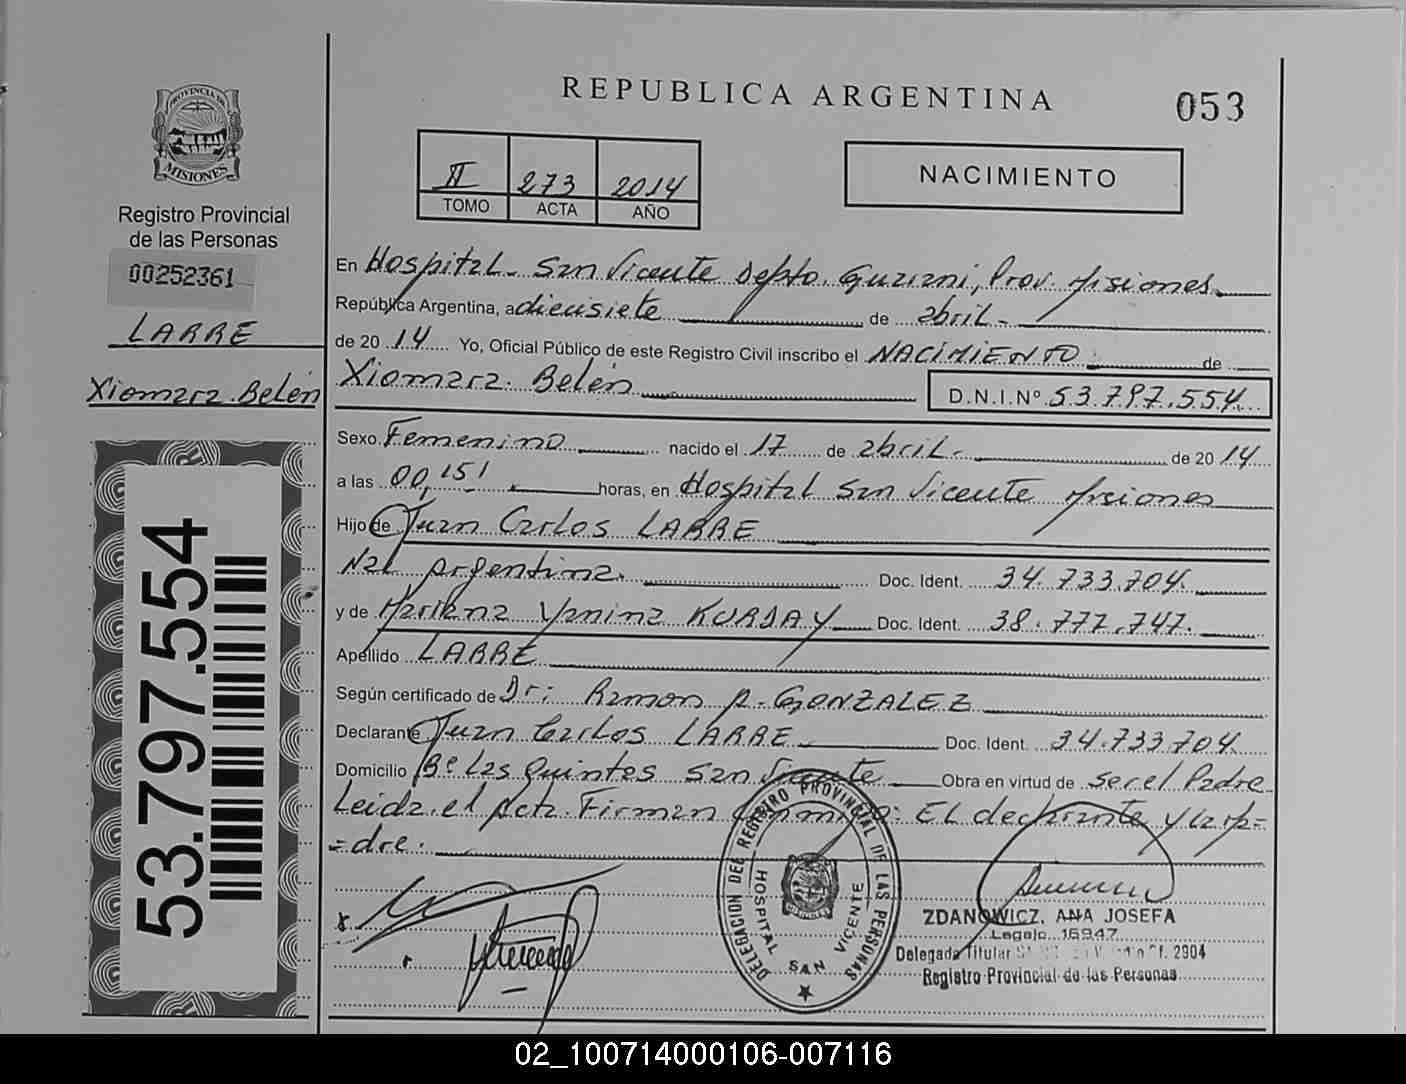 REPUBLICA ARGENTINA
053
PROVINCIA DE
MISIONES
Registro Provincial
de las Personas
00252361
LARRE
Xiomara Belén
53.797.554
II 273 2014
TOMO ACTA AÑO
NACIMIENTO
En Hospital San Vicente Depto. Guarani, Prov. Misiones
República Argentina, a diecisiete de abril
de 20 14 Yo, Oficial Público de este Registro Civil inscribo el NACIMIENTO de
Xiomara Belén D.N.I.Nº 53.797.554
Sexo Femenino nacido el 17 de abril de 20 14
a las 00,15' horas, en Hospital San Vicente Misiones
Hijo de Juan Carlos LARRE
Nac Argentina. Doc. Ident. 34.733.704.
y de Mariana Yanina KURDAY Doc. Ident. 38.777.747.
Apellido LARRE
Según certificado de Dr: Ramon A. GONZALEZ
Declarante Juan Carlos LARRE Doc. Ident. 34.733.704
Domicilio Bº Las Quintas San Vicente Obra en virtud de ser el Padre
Leida el Acta Firman conmigo: El declarante y la ma=
=dre.
DELEGACION DEL REGISTRO PROVINCIAL DE LAS PERSONAS
HOSPITAL SAN VICENTE
ZDANOWICZ, ANA JOSEFA
Legajo 16947
Delegada Titular Of. 2904
Registro Provincial de las Personas
02_100714000106-007116